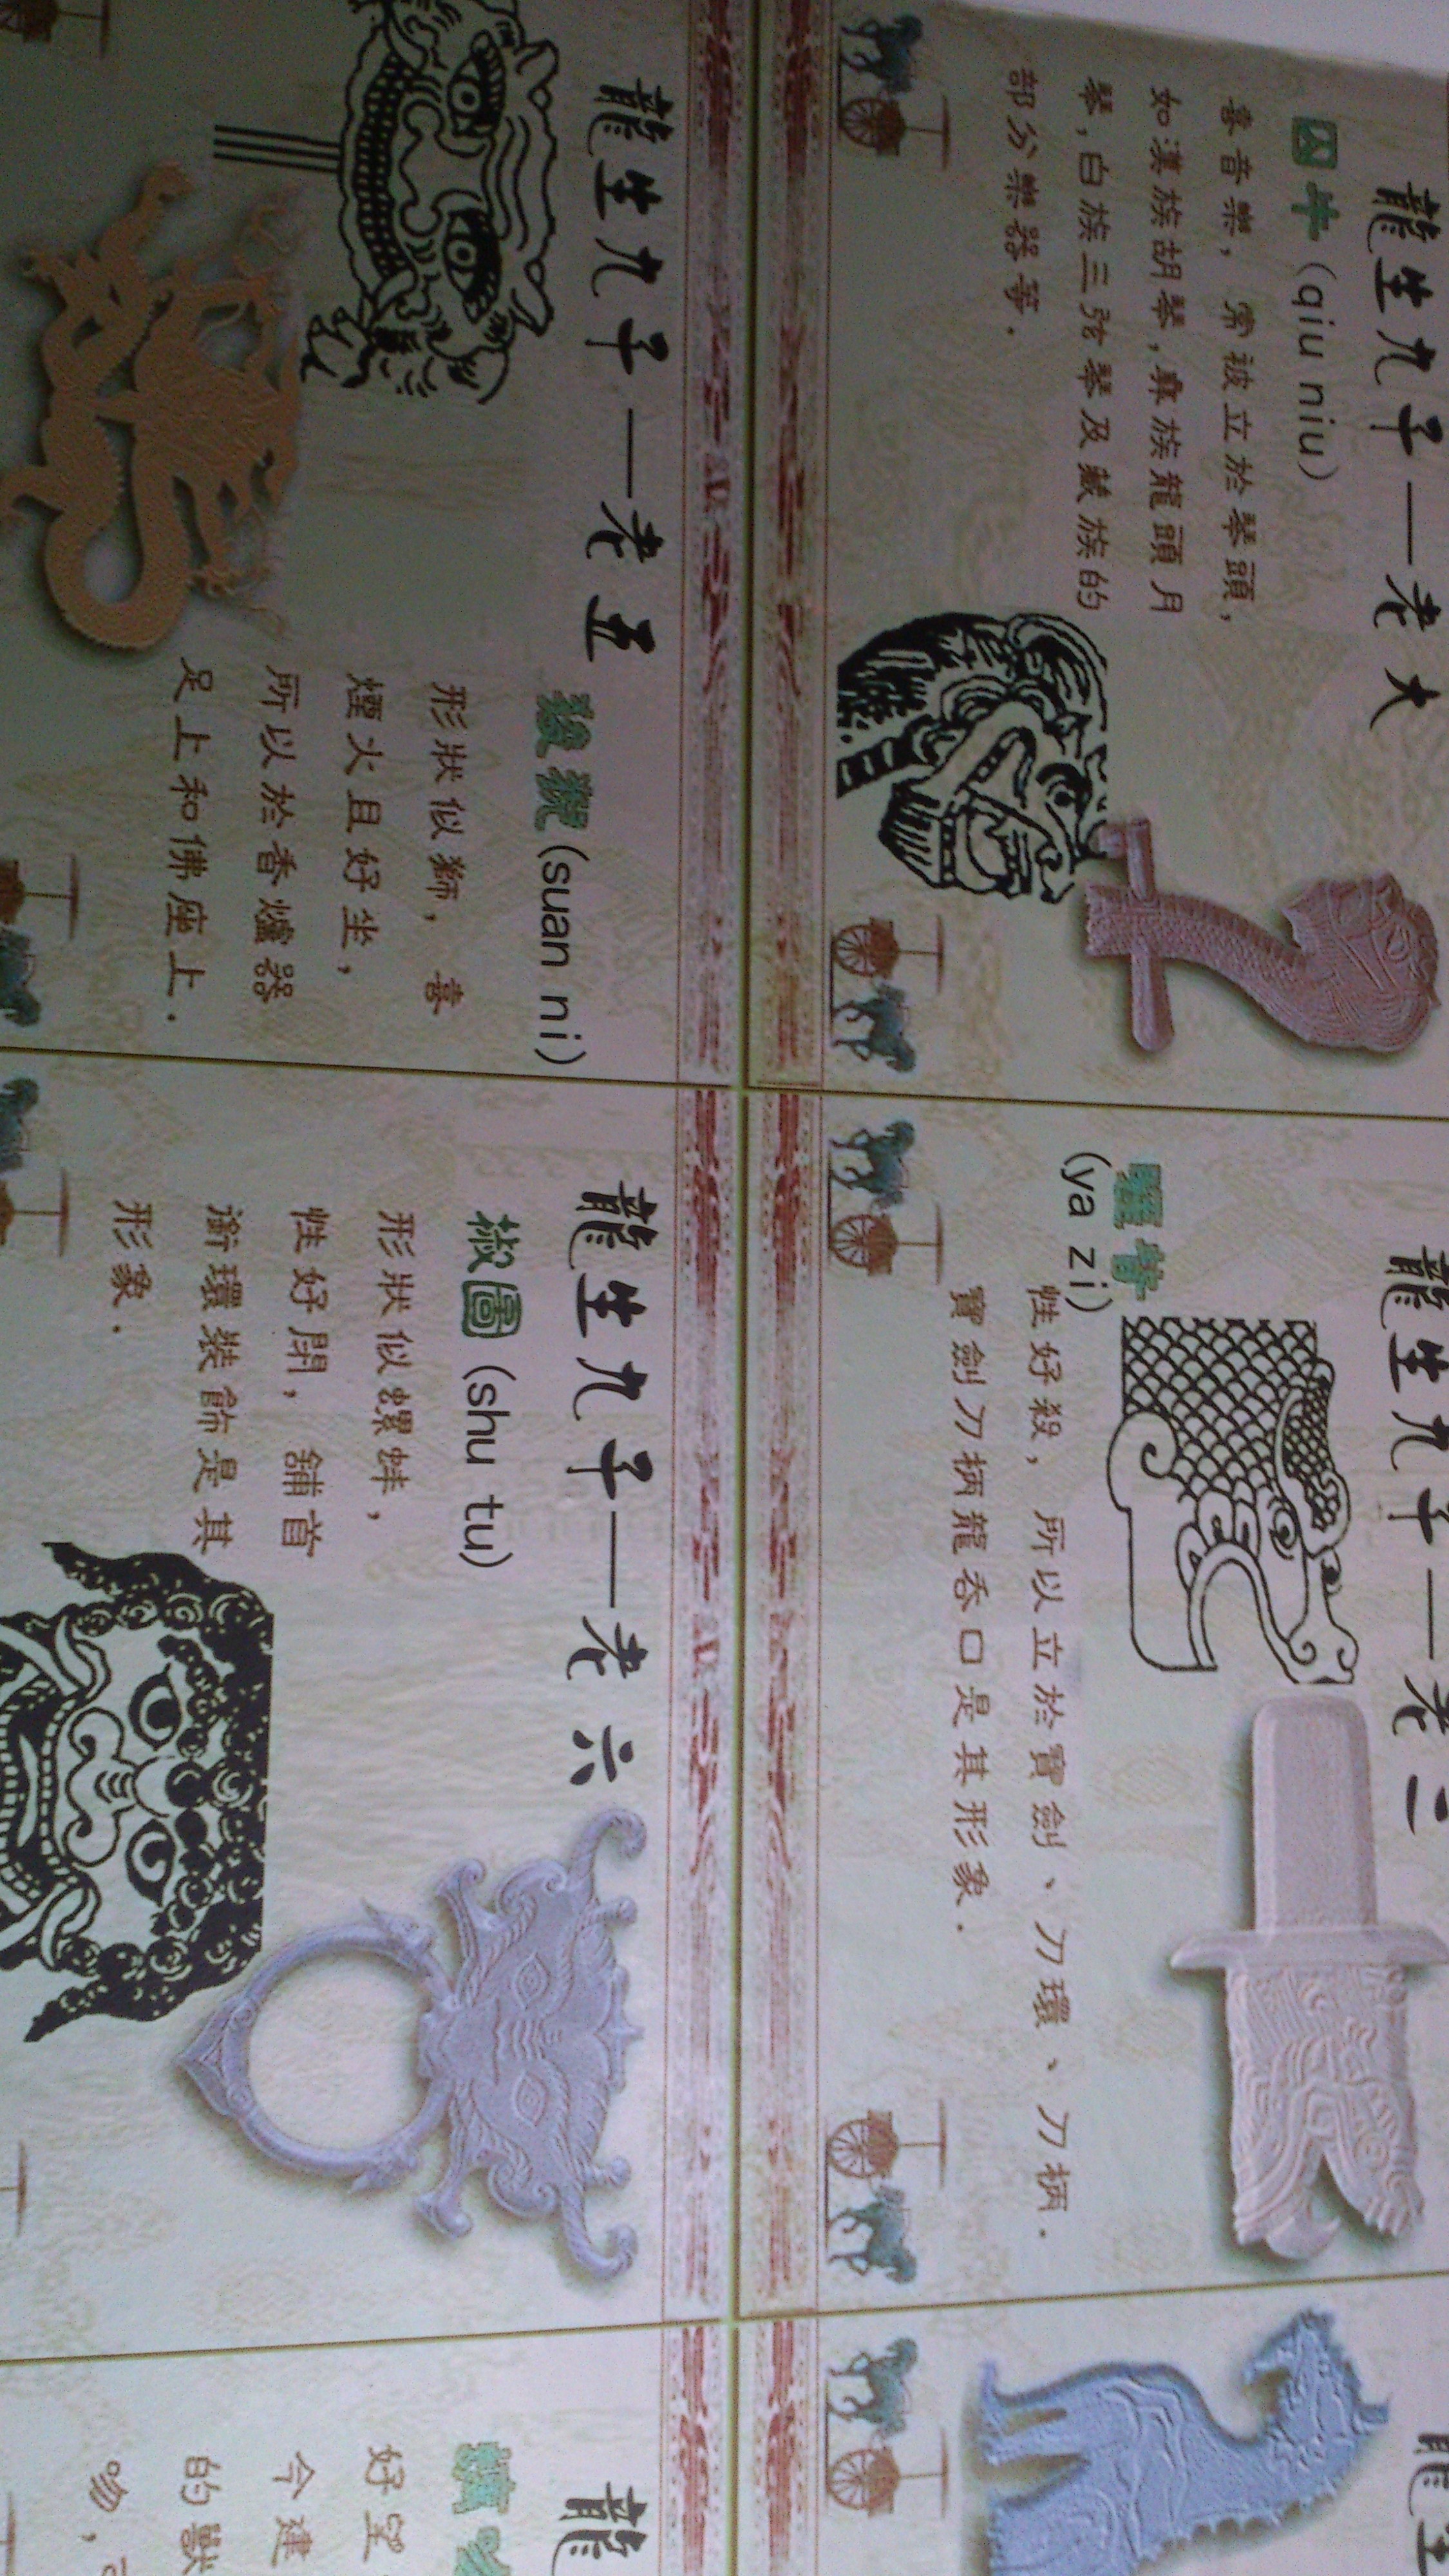 龍生九子—老大
囚牛(qiu niu)
喜音樂, 常被立於琴頭,
如漢族胡琴,彝族龍頭月
琴,白族三弦琴及藏族的
部分樂器等.
龍生九子—老二
睚眥
(ya zi)
性好殺, 所以立於寶劍、刀環、刀柄.
寶劍刀柄龍吞口是其形象.
龍生
龍生九子—老五
狻猊(suan ni)
形狀似獅, 喜
煙火且好坐,
所以於香爐器
足上和佛座上.
龍生九子—老六
椒圖(shu tu)
形狀似螺蚌,
性好閉, 舖首
銜環裝飾是其
形象.
龍
好望
今建
的獸
吻,